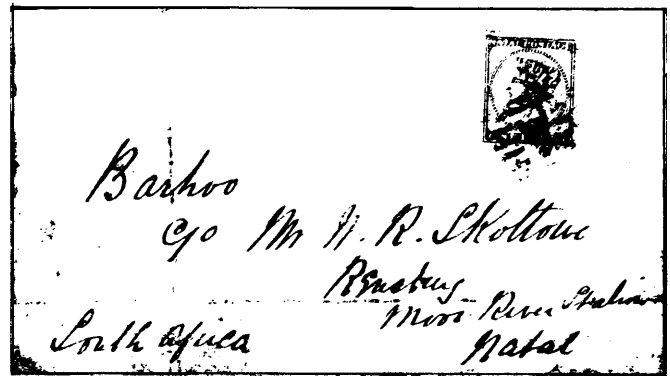 Barhoo
c/o Mr N. R. Skottowe
Rensburg
Mooi River Station
Natal
South Africa